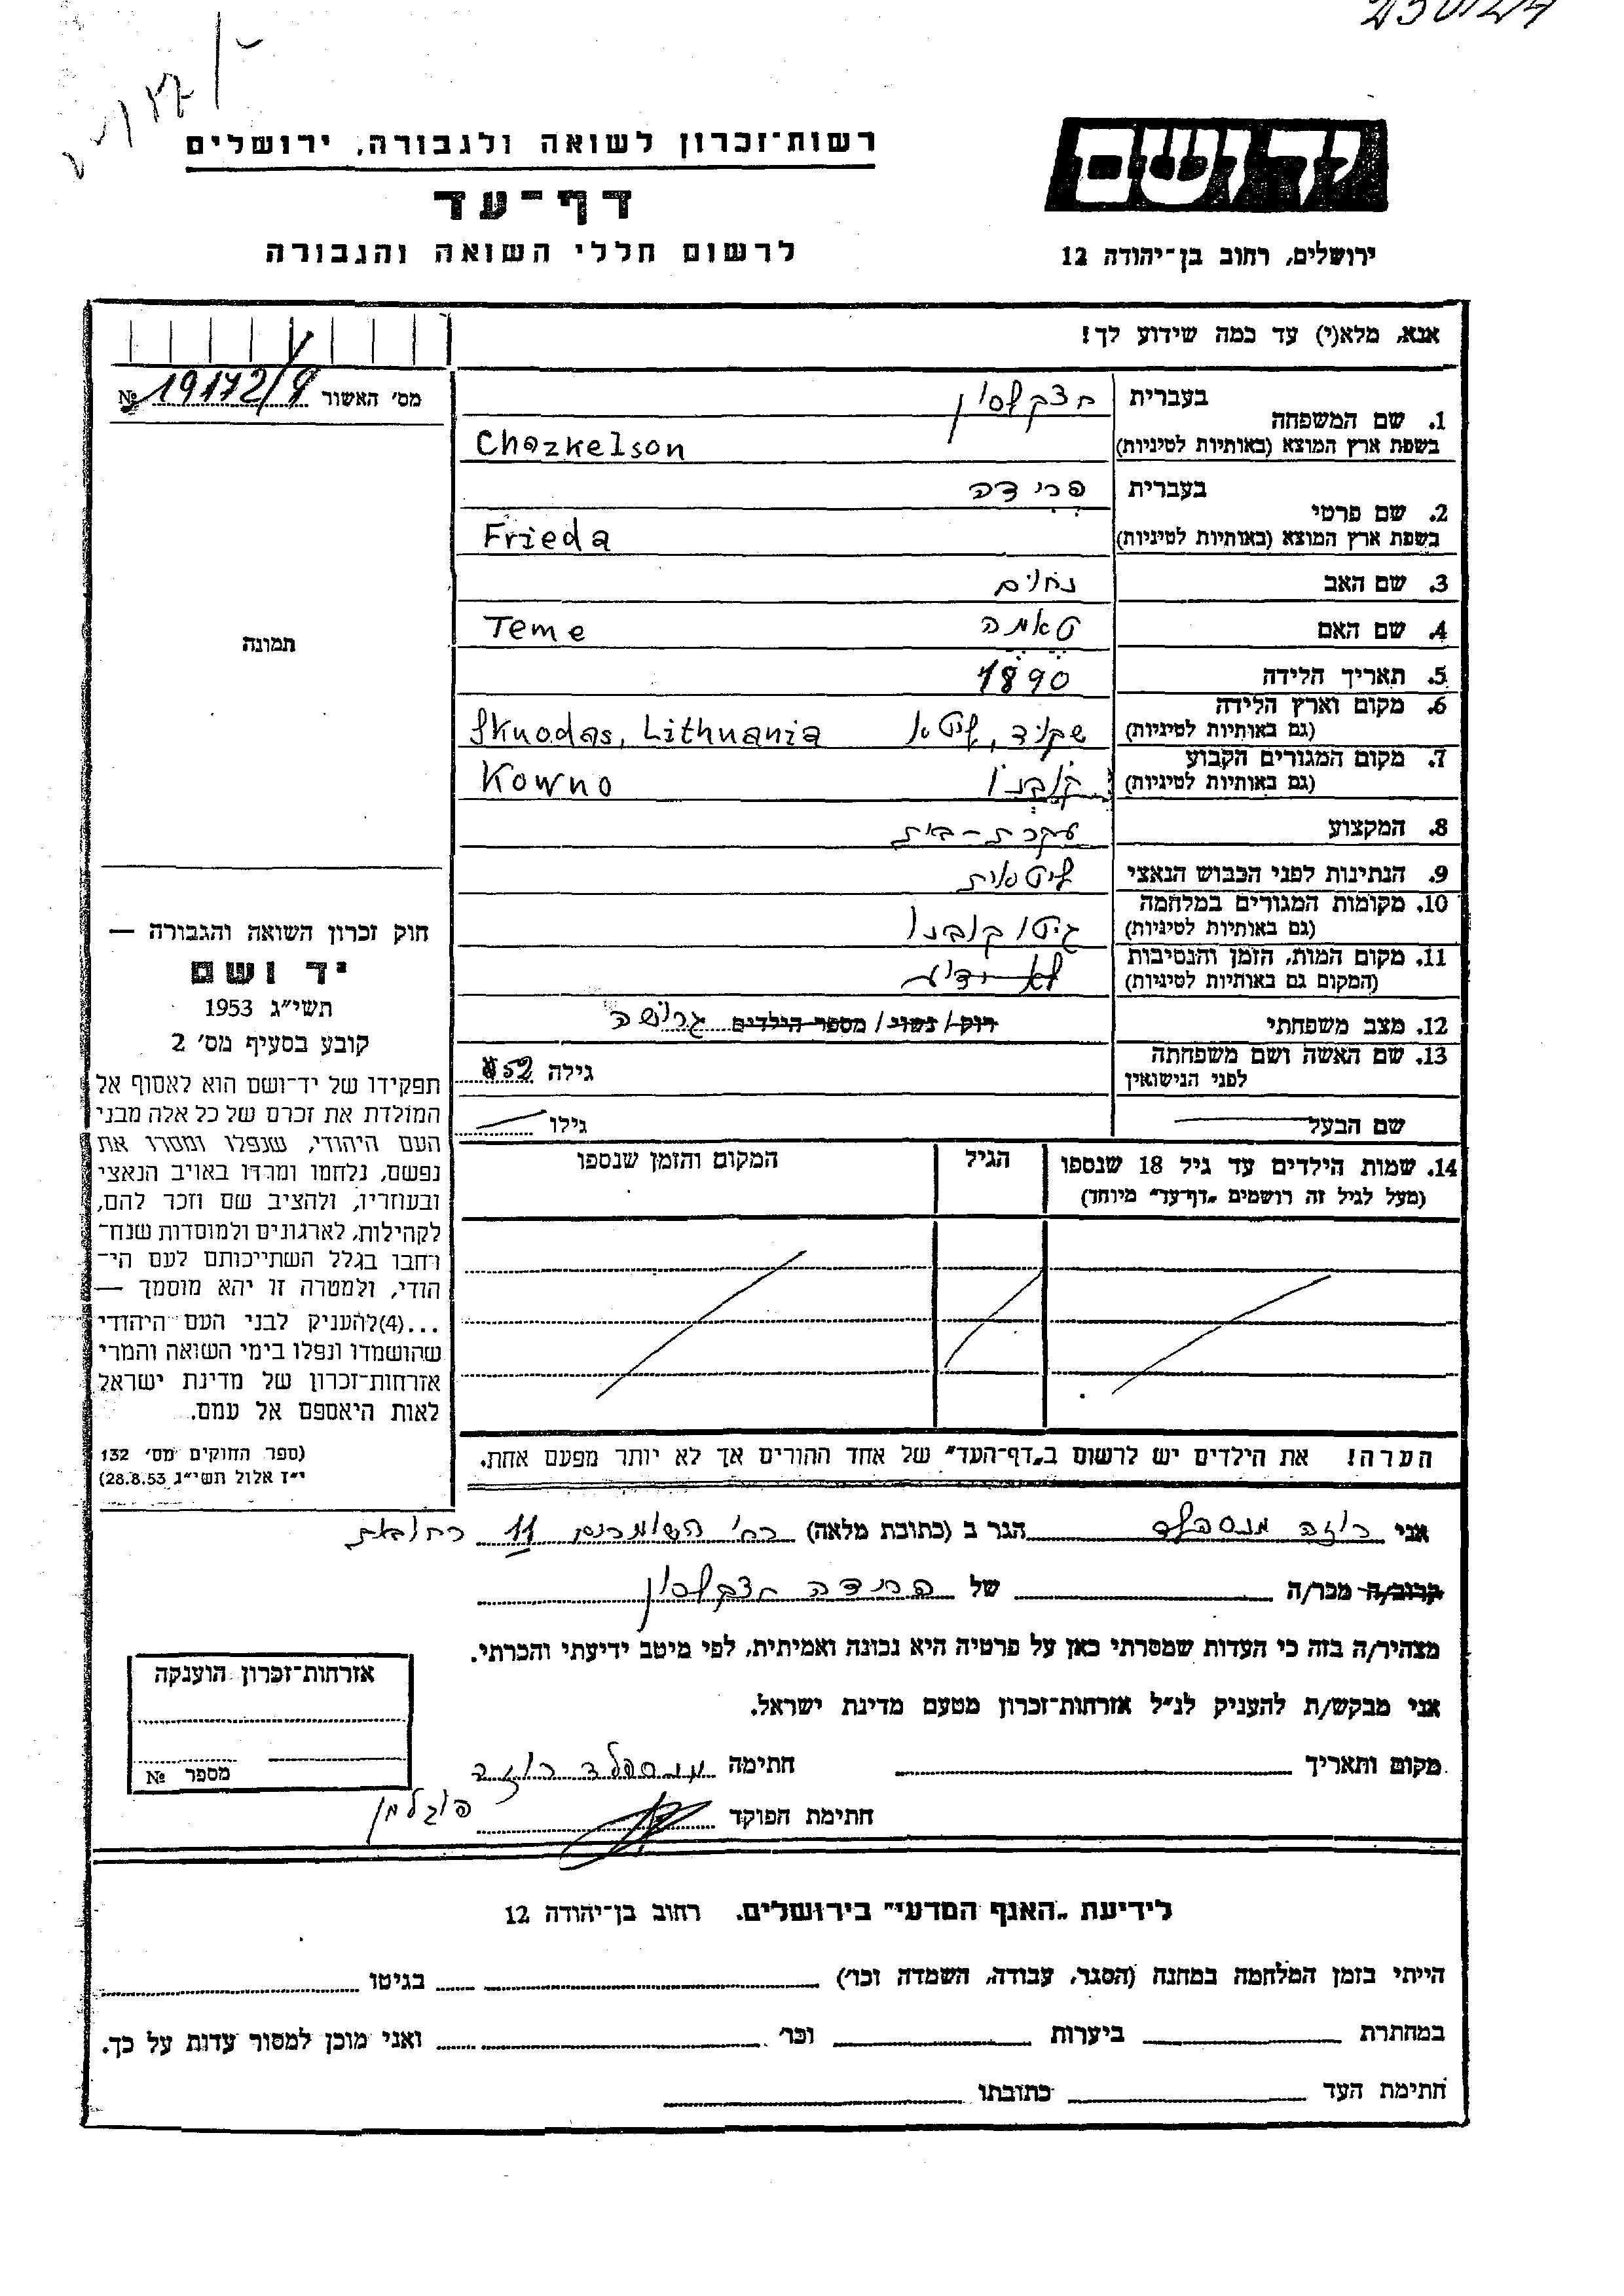 רשות־זכרון לשואה ולגבורה, ירושלים
דף־עד
לרשום חללי השואה והגבורה
יד ושם
ירושלים, רחוב בן־יהודה 12
אנא, מלא(י) עד כמה שידוע לך!
מס׳ האשור № 19172/9
1. שם המשפחה
בעברית חצקלסון
בשפת ארץ המוצא (באותיות לטיניות) Chazkelson
2. שם פרטי
בעברית פרידה
בשפת ארץ המוצא (באותיות לטיניות) Frieda
3. שם האב נחום
4. שם האם טאמה Teme
5. תאריך הלידה 1890
6. מקום וארץ הלידה
(גם באותיות לטיניות) שקוד, ליטא Skuodas, Lithuania
7. מקום המגורים הקבוע
(גם באותיות לטיניות) קובנו Kowno
8. המקצוע עקרת-בית
9. הנתינות לפני הכבוש הנאצי ליטאית
10. מקומות המגורים במלחמה
(גם באותיות לטיניות) גיטו קובנו
11. מקום המות, הזמן והנסיבות
(המקום גם באותיות לטיניות) לא ידוע
12. מצב משפחתי רוק/נשוי/מספר הילדים גרושה
13. שם האשה ושם משפחתה
לפני הנישואין גילה 52
שם הבעל גילו
14. שמות הילדים עד גיל 18 שנספו הגיל המקום והזמן שנספו
(מעל לגיל זה רושמים „דף־עד״ מיוחד)
הערה! את הילדים יש לרשום ב„דף־העד״ של אחד ההורים אך לא יותר מפעם אחת.
תמונה
חוק זכרון השואה והגבורה —
יד ושם
תשי״ג 1953
קובע בסעיף מס׳ 2
תפקידו של יד־ושם הוא לאסוף אל
המולדת את זכרם של כל אלה מבני
העם היהודי, שנפלו ומסרו את
נפשם, נלחמו ומרדו באויב הנאצי
ובעוזריו, ולהציב שם וזכר להם,
לקהילות, לארגונים ולמוסדות שנח־
רחבו בגלל השתייכותם לעם הי־
הודי, ולמטרה זו יהא מוסמך —
...(4)להעניק לבני העם היהודי
שהושמדו ונפלו בימי השואה והמרי
אזרחות־זכרון של מדינת ישראל
לאות היאספם אל עמם.
(ספר החוקים מס׳ 132
י״ז אלול תשי״ג 28.8.53)
אני רוזה מנספלד הגר ב (כתובת מלאה) רח׳ השומרים 11 רחובות
קרוב/ה מכר/ה של פרידה חצקלסון
מצהיר/ה בזה כי העדות שמסרתי כאן על פרטיה היא נכונה ואמיתית, לפי מיטב ידיעתי והכרתי.
אני מבקש/ת להעניק לנ״ל אזרחות־זכרון מטעם מדינת ישראל.
מקום ותאריך חתימה מנספלד רוזה
חתימת הפוקד פוגלמן
אזרחות־זכרון הוענקה
מספר №
לידיעת „האגף המדעי״ בירושלים. רחוב בן־יהודה 12
הייתי בזמן המלחמה במחנה (הסגר, עבודה, השמדה וכו׳) בגיטו
במחתרת ביערות וכו׳ ואני מוכן למסור עדות על כך.
חתימת העד כתובתו